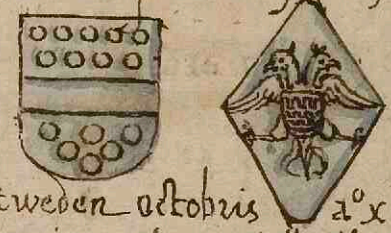 tweden octobris a° x